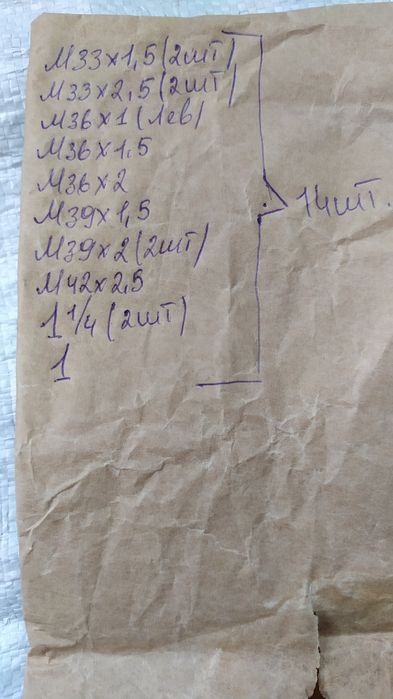 М33×1,5 (2шт)
М33×2,5 (2шт)
М36×1 (Лев)
М36×1.5
М36×2
М39×1,5
М39×2 (2шт)
М42×2,5
1 1/4 (2шт)
1
14шт.